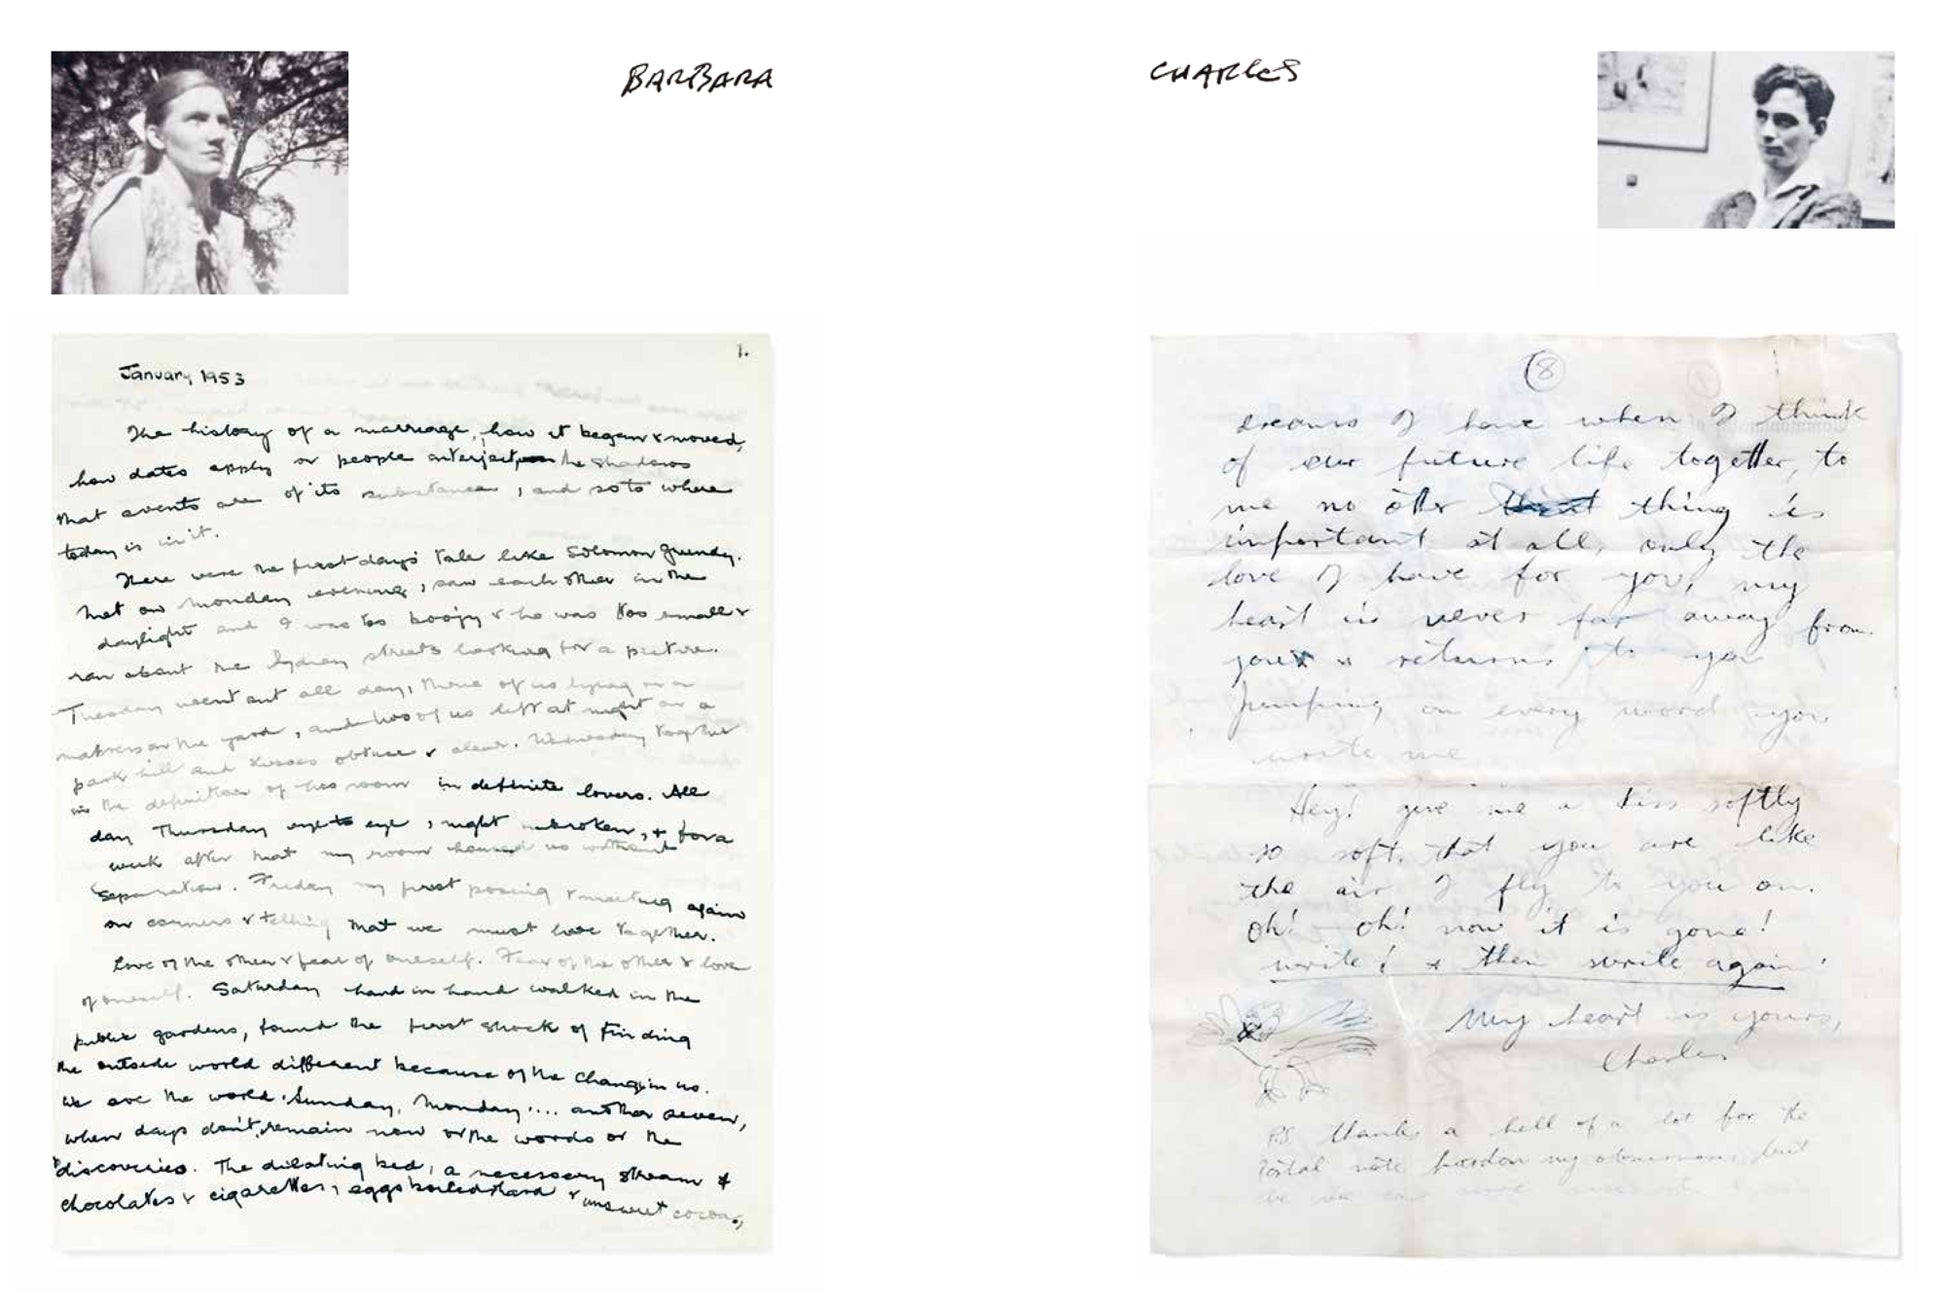 BARBARA
CHARLES
1.
January 1953
The history of a marriage, how it began & moved,
how dates apply or people interject the shadows
that events are of its substance, and so to where
today is in it.
There were the first days tale like Solomon Grundy.
Met on Monday evening, saw each other in the
daylight and I was too boojy & he was too small &
ran about the Sydney streets looking for a picture.
Tuesday went out all day, three of us lying on a
mattress on the yard, and two of us left at night on a
park hill and kisses obtuse & clear. Wednesday together
in the definition of his room in definite lovers. All
day Thursday eye to eye, night unbroken, & for a
week after that my room housed us without
separation. Friday my first posing & meeting again
on corners & telling that we must live together.
Love of the other & fear of oneself. Fear of the other & love
of oneself. Saturday hand in hand walked in the
public gardens, found the first shock of finding
the outside world different because of the change in us.
We are the world. Sunday, Monday .... another seven,
when days don't remain now or the words or the
discoveries. The dilating bed, a necessary stream of
chocolates & cigarettes, eggs boiled hard & unsweet cocoa,
(8
dreams I have when I think
of our future life together, to
me no other thing is
important at all, only the
love I have for you, my
heart is never far away from
you & returns to you
jumping on every word you
write me
Hey! give me a kiss softly
so soft, that you are like
the air I fly to you on.
oh! oh! now it is gone!
write! & then write again!
My heart is yours,
Charles
P.S. thanks a hell of a lot for the
Postal note pardon my but
be we can some